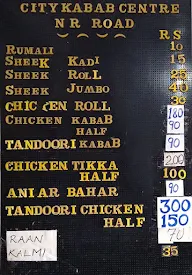 CITY KABAB CENTRE
N R ROAD
RS
RUMALI 10
SHEEK KADI 15
SHEEK ROLL 25
SHEEK JUMBO 40
CHIC EN ROLL 30
CHICKEN KABAB 180
HALF 90
TANDOORI KABAB 90
200
CHICKEN TIKKA
HALF 100
ANI AR BAHAR 90
TANDOORI CHICKEN 300
HALF 150
RAAN 70
KALMI 35